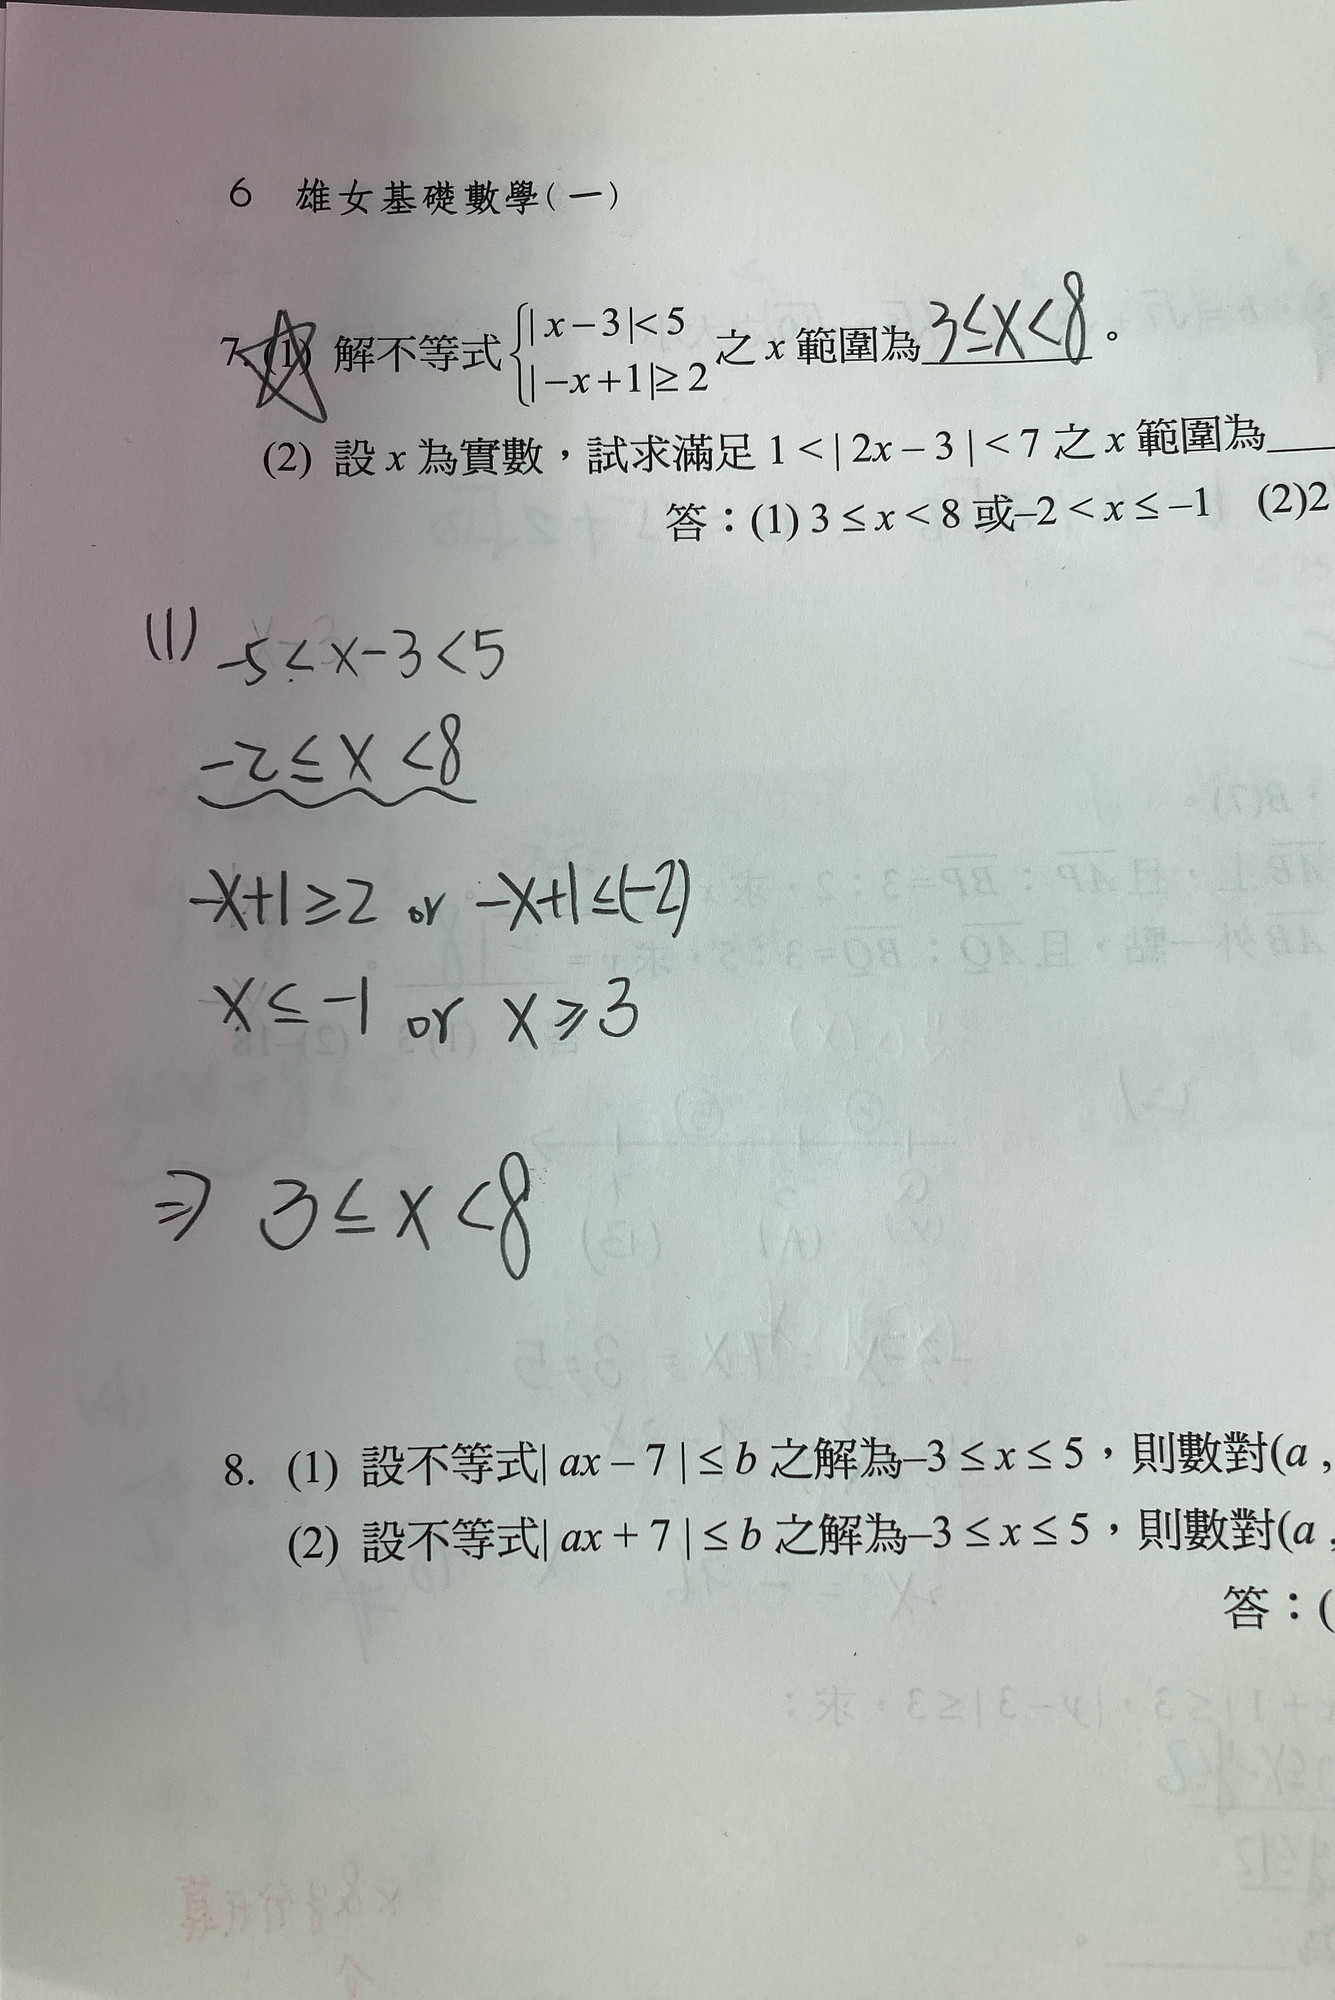 6 雄女基礎數學(一)
7. (1) 解不等式 { |x－3|<5 之 x 範圍為 3≤x<8 。
|－x+1|≥2
(2) 設 x 為實數，試求滿足 1<|2x－3|<7 之 x 範圍為
答：(1) 3≤x<8 或–2<x≤–1 (2)2
(1) -5<x-3<5
-2≤x<8
-x+1≥2 or -x+1≤(-2)
x≤-1 or x≥3
⇒ 3≤x<8
8. (1) 設不等式|ax－7|≤b 之解為–3≤x≤5，則數對(a ,
(2) 設不等式|ax+7|≤b 之解為–3≤x≤5，則數對(a ,
答：(